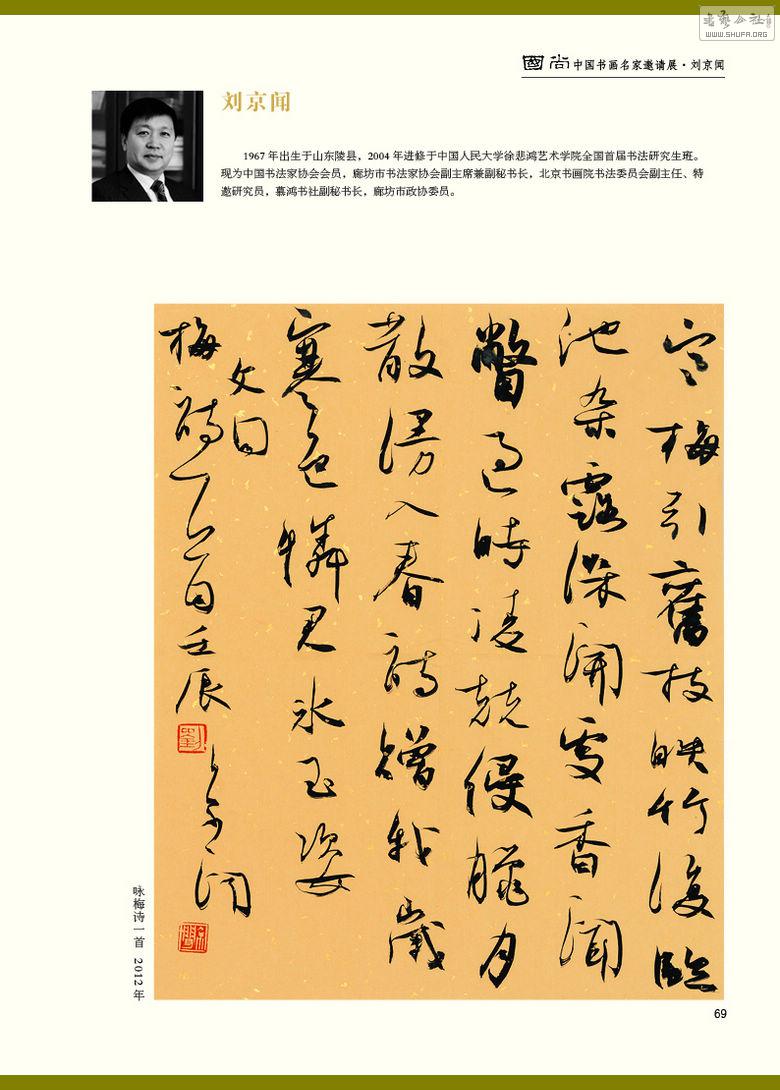 书艺公社
WWW.SHUFA.ORG
國尚 中国书画名家邀请展·刘京闻
刘京闻
1967 年出生于山东陵县，2004 年进修于中国人民大学徐悲鸿艺术学院全国首届书法研究生班。
现为中国书法家协会会员，廊坊市书法家协会副主席兼副秘书长，北京书画院书法委员会副主任、特
邀研究员，慕鸿书社副秘书长，廊坊市政协委员。
寒梅引舊枝映竹復臨
池朵露深開處香聞
瞥過時凌兢侵臘月
散漫入春詩贈我歲
寒色憐君冰玉姿
文同
梅詩一首壬辰
京聞
咏梅诗一首 2012年
69